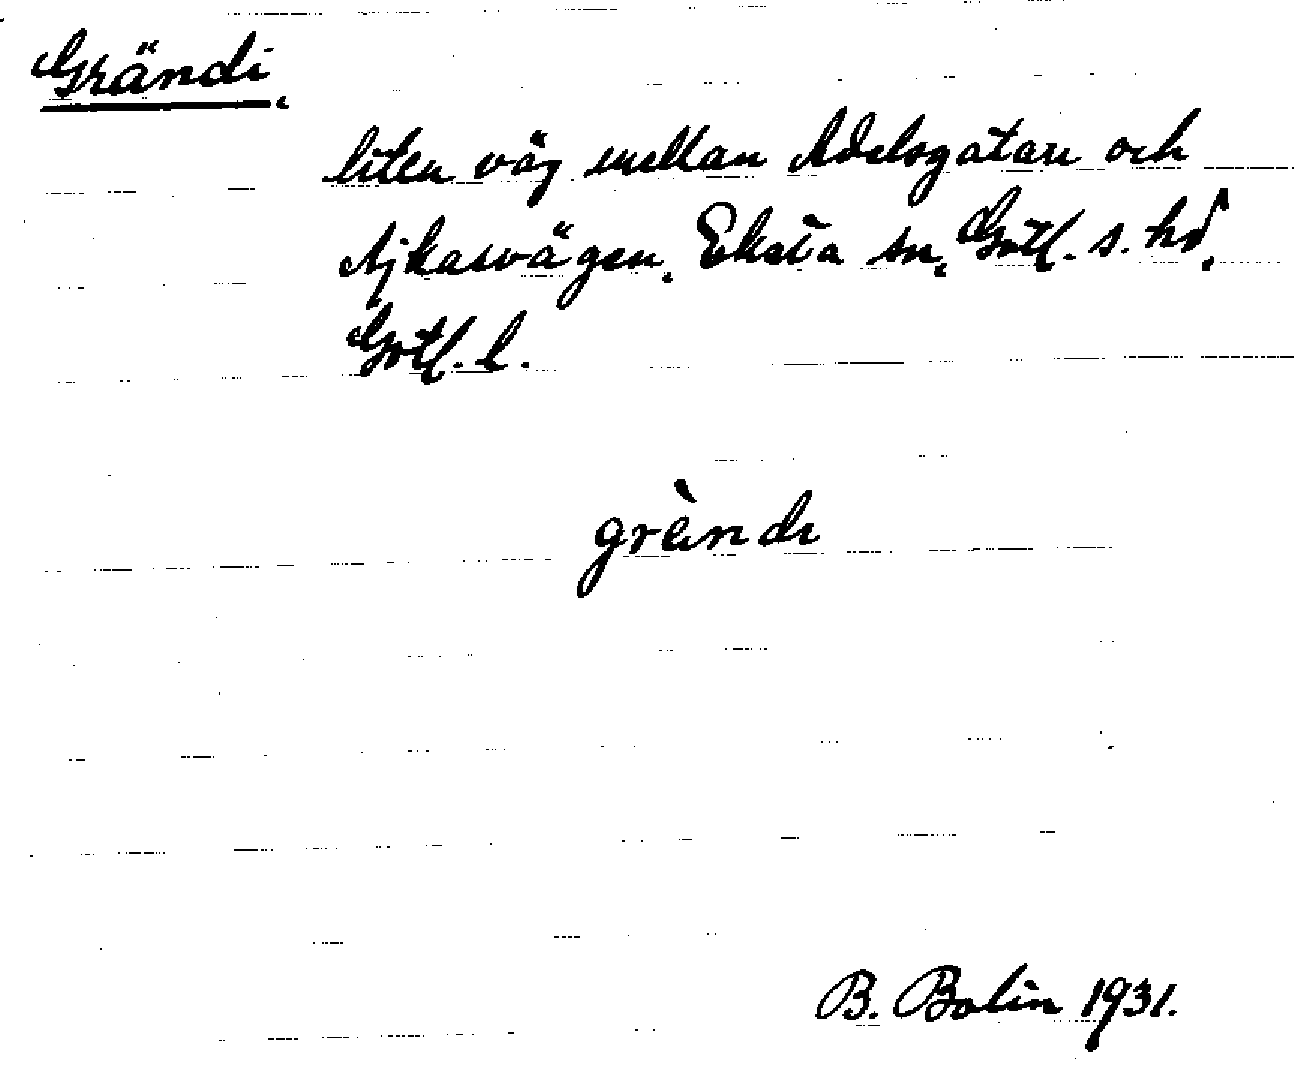 Grändi.
liten väg mellan Adelsgatan och
Ajkesvägen. Eksta sn. Gotl. s. hd.
Gotl. l.
grèndi
B. Bolin 1931.